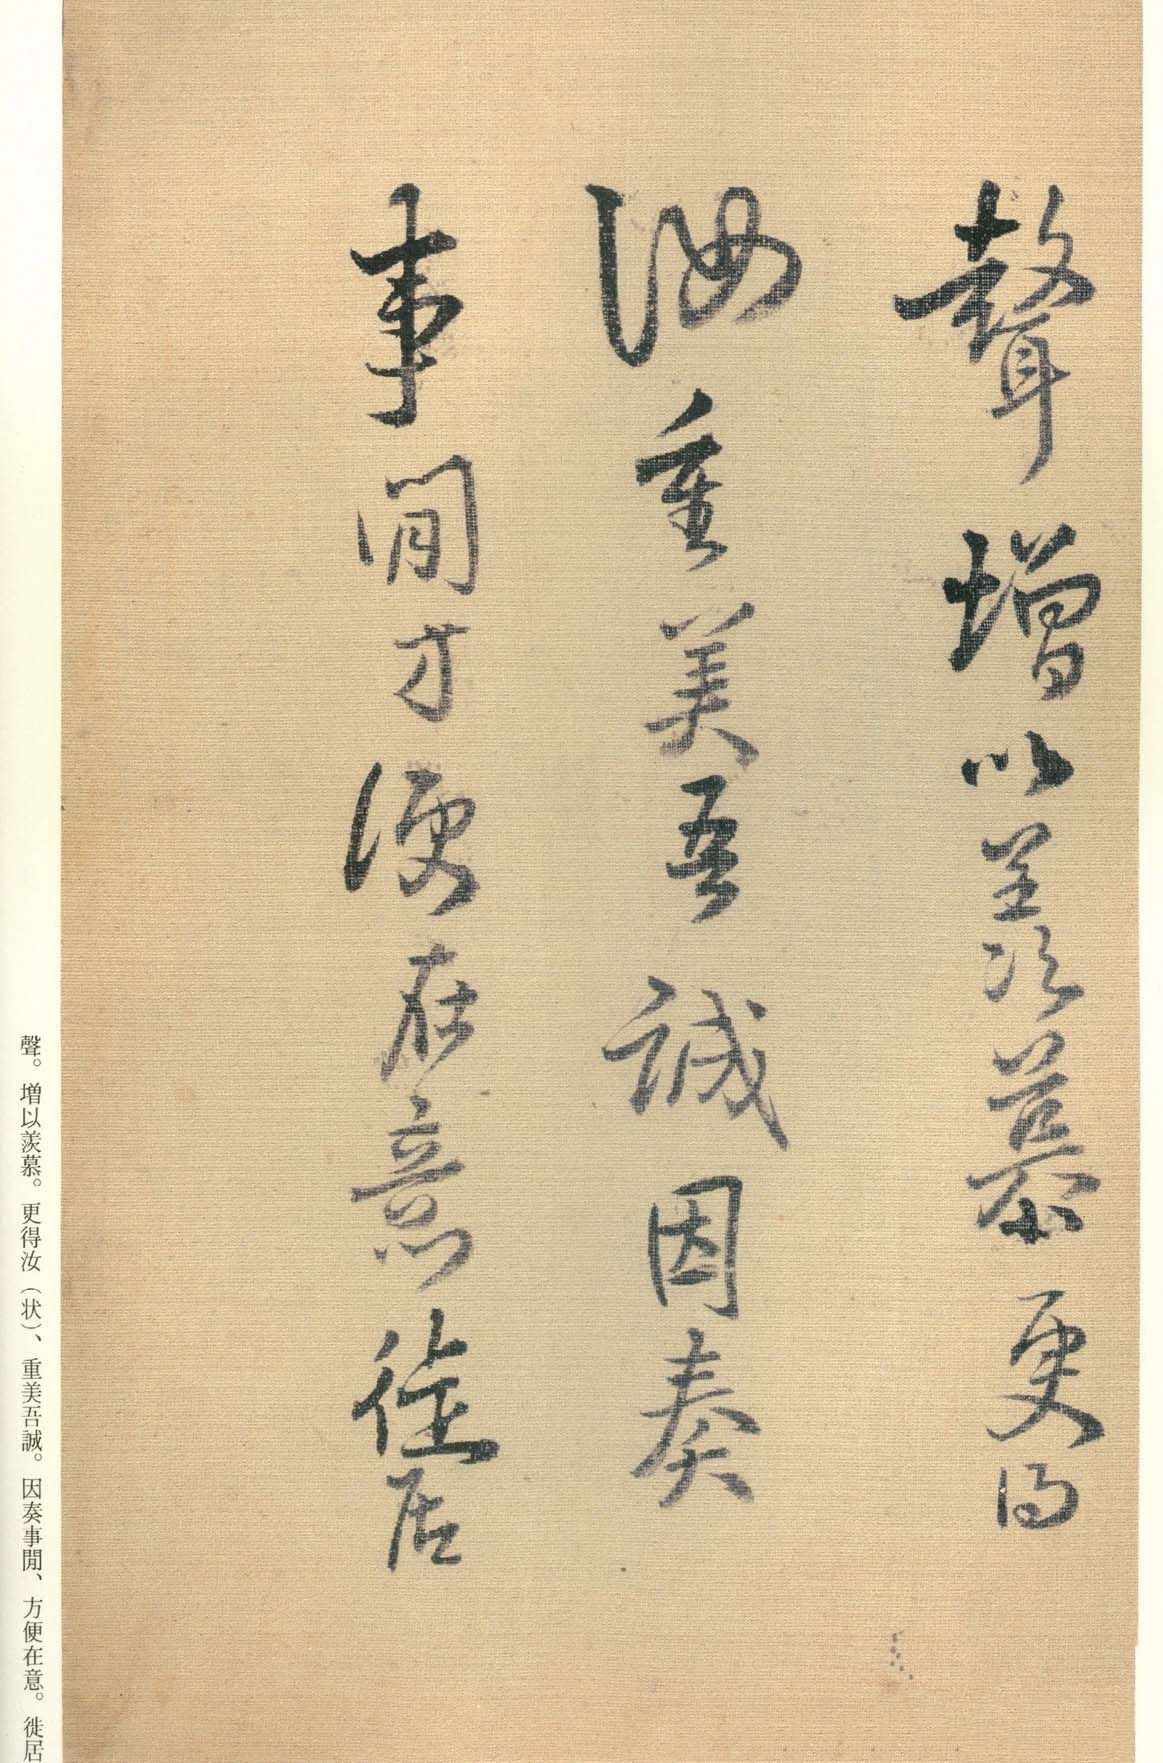 聲增以羨慕更得
汝重美吾誠因奏
事閒方便在意徙居
聲。増以羨慕。更得汝（状）、重美吾誠。因奏事閒、方便在意。徙居